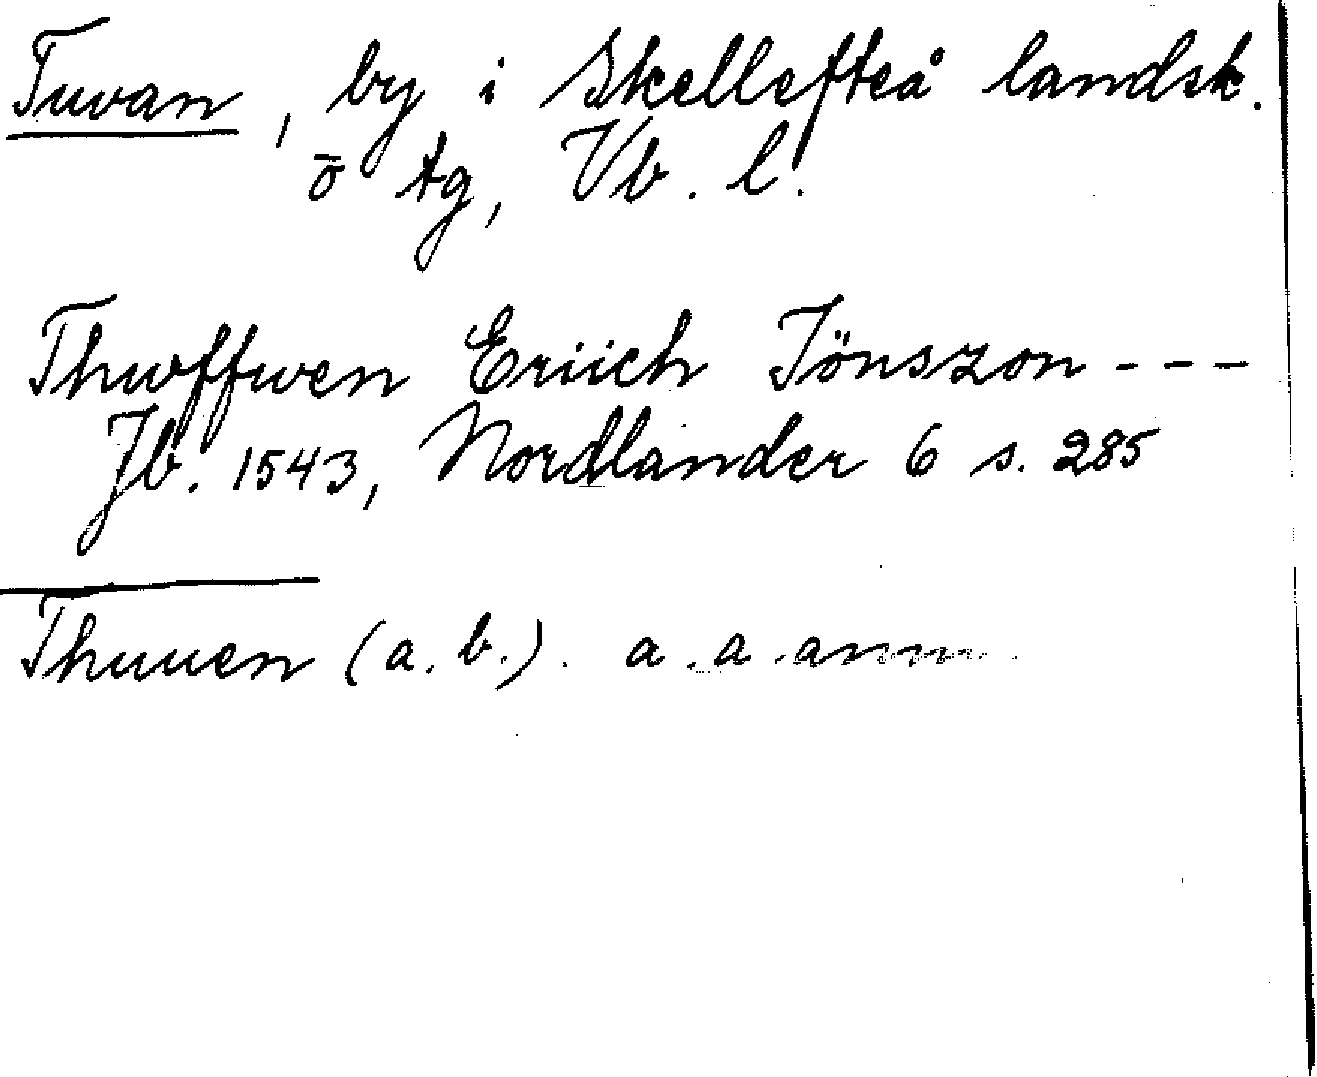 Tuvan, by i Skellefteå landsk.
ö tg, Vb. l.
Thwffwen Eriich Jönszon - - -
Jb. 1543, Nordlander 6 s. 285
Thuuen (a. b.). a. a. anm.